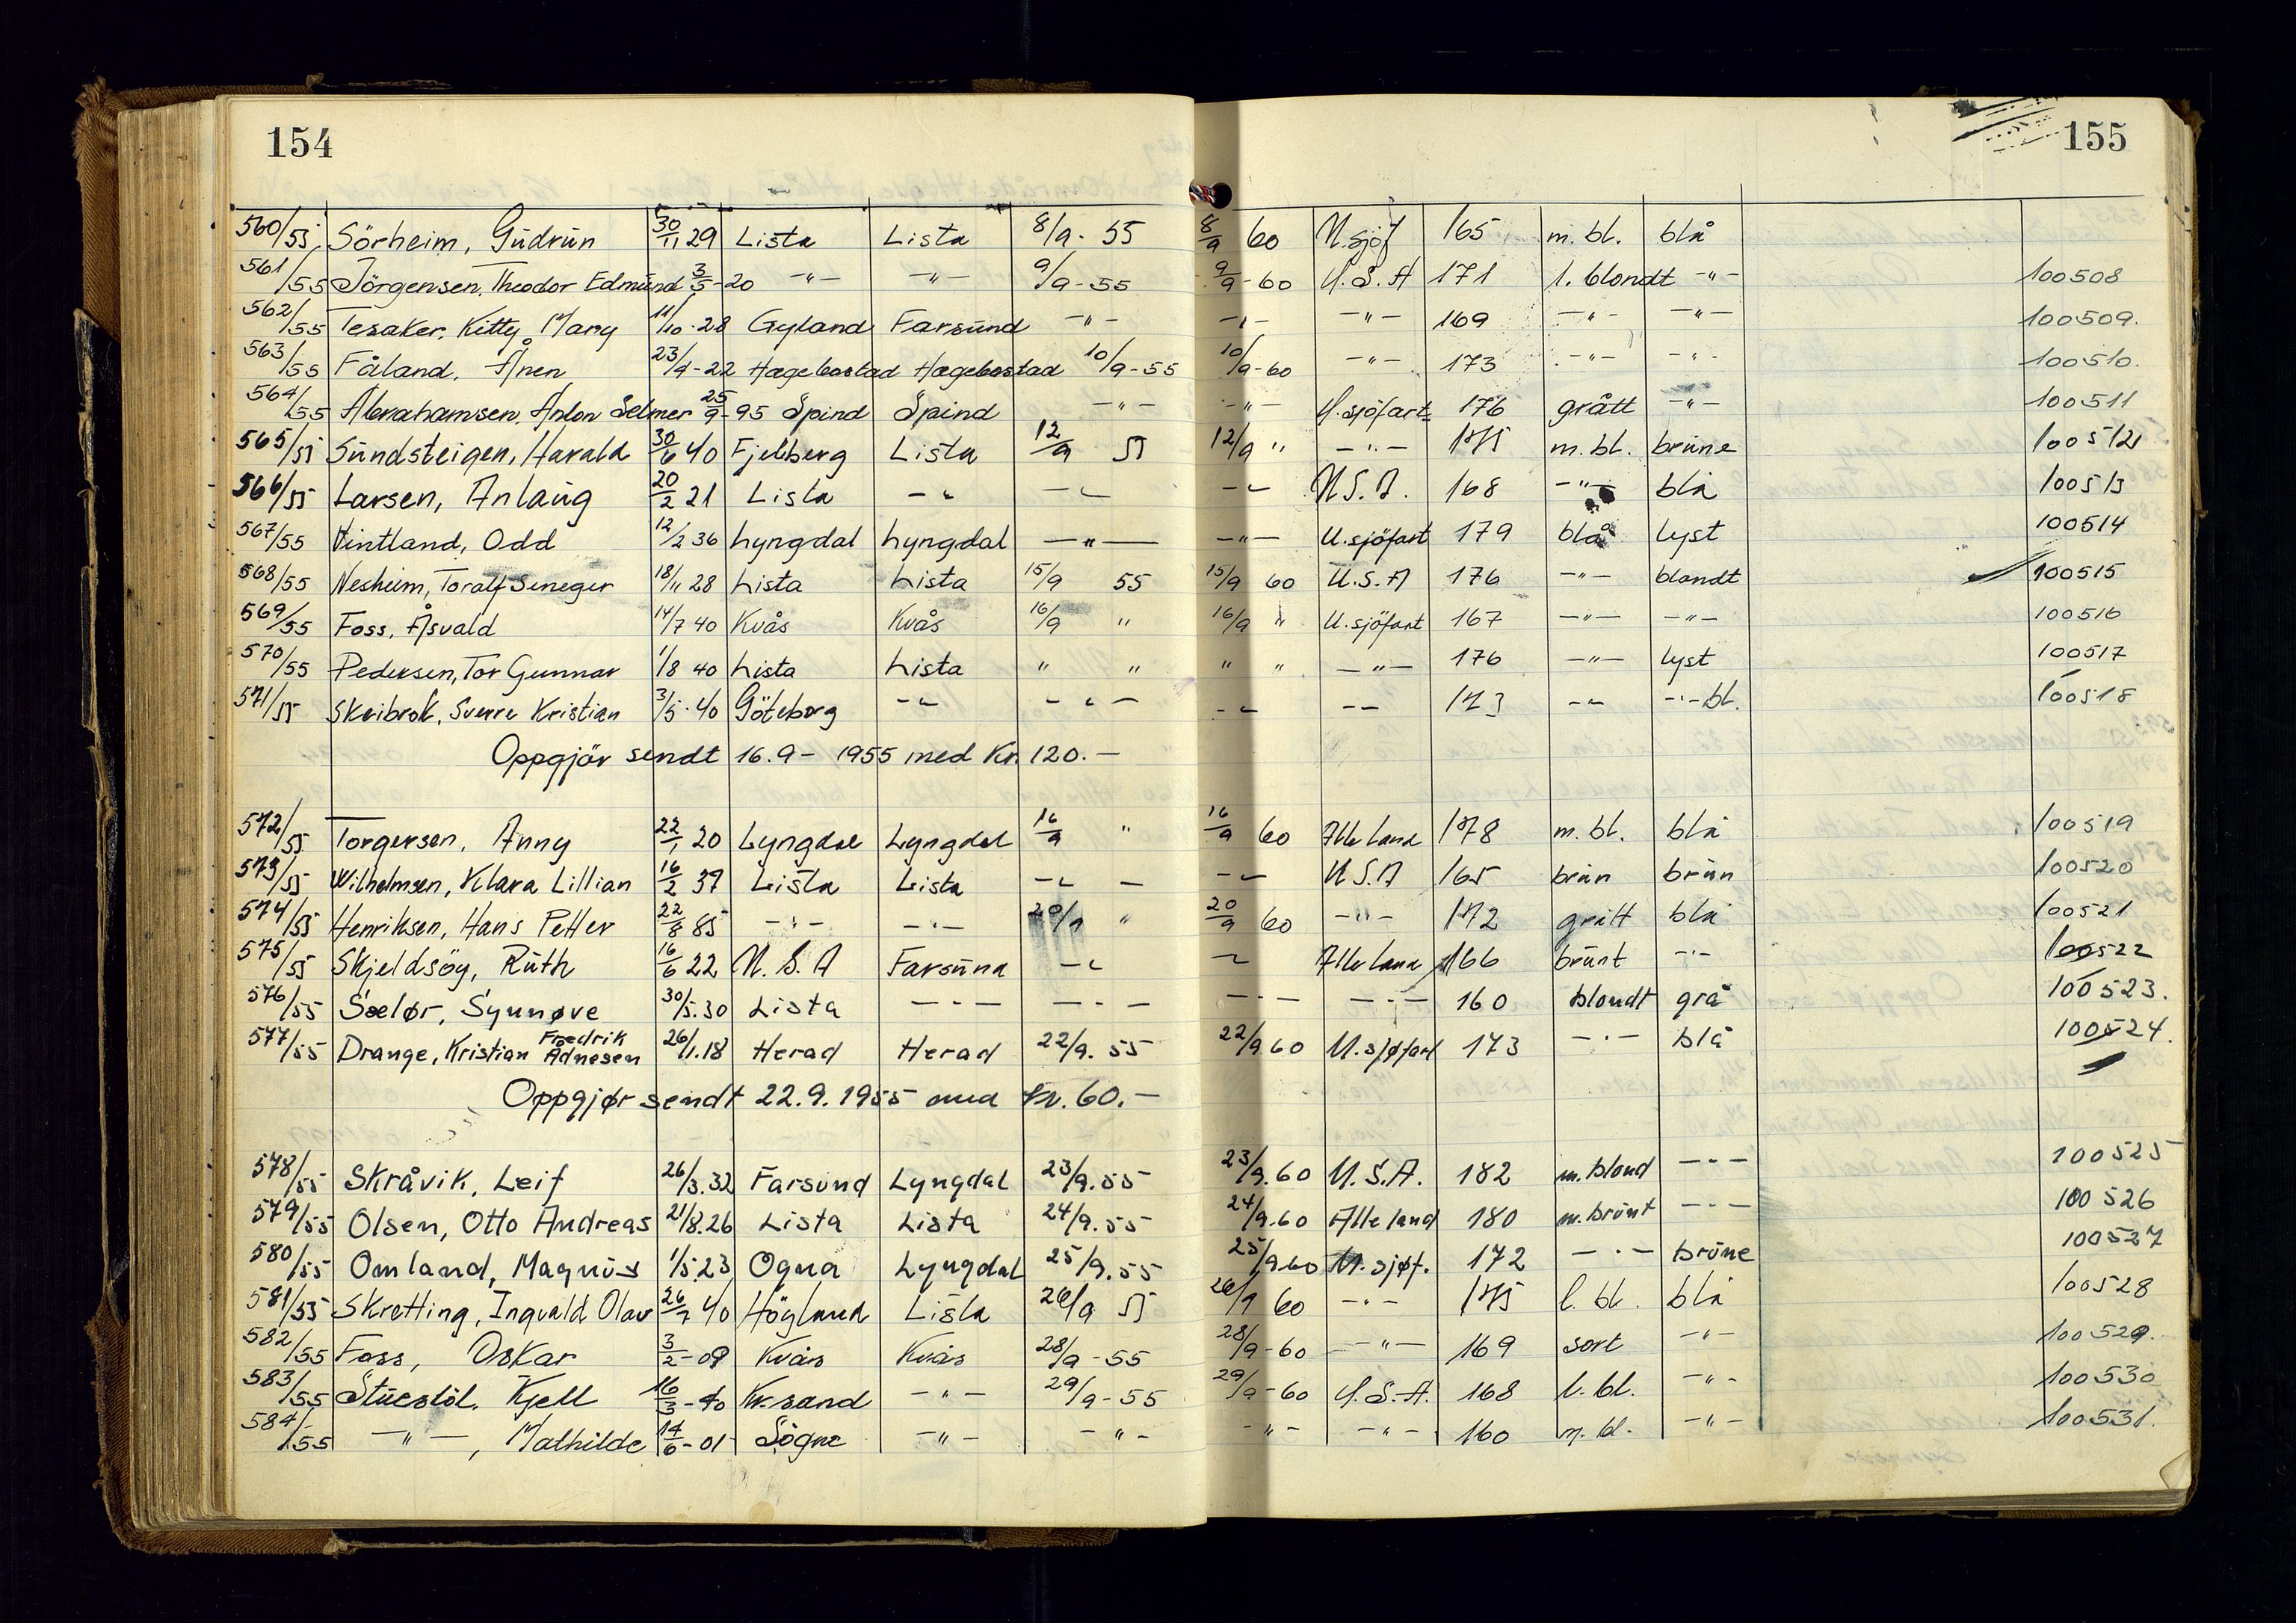 154
155
560/55 Sörheim, Gudrun 30/11 29 Lista Lista 8/9 - 55 8/9 60 U.sjöf 165 m. bl. blå
561/55 Jörgensen, Theodor Edmund 3/5 - 20 -"- -"- 9/9 - 55 9/9 - 60 U.S.A 171 l. blondt -"- 100508
562/55 Tesaker, Kitty Mary 11/10 - 28 Gyland Farsund -"- -"- -"- 169 -"- -"- 100509.
563/55 Fåland, Ånen 23/9 - 22 Hægebostad Hægebostad 10/9 - 55 10/9 - 60 -"- 173 -"- -"- 100510.
564/55 Abrahamsen, Anton Selmer 25/9 - 95 Spind Spind -"- -"- U.sjöfart 176 grått -"- 100511
565/55 Sundsteigen, Harald 30/6 40 Fjelberg Lista 12/9 55 12/9 " -"- 175 m. bl. brune 100512
566/55 Larsen, Anlaug 20/2 21 Lista -"- -"- -"- U.S.A. 168 -"- blå 100513
567/55 Vintland, Odd 12/2 36 Lyngdal Lyngdal -"- -"- U.sjöfart 179 blå lyst 100514
568/55 Nesheim, Toralf Seneger 18/11 28 Lista Lista 15/9 55 15/9 60 U.S.A 176 -"- blondt 100515
569/55 Foss, Åsvald 14/7 40 Kvås Kvås 16/9 " 16/9 " U.sjöfart 167 -"- -"- 100516
570/55 Pedersen, Tor Gunnar 1/8 40 Lista Lista " " " " -"- 176 -"- lyst 100517
571/55 Skeibrok, Sverre Kristian 3/5 - 40 Göteborg -"- -"- -"- -"- 173 -"- -"- bl. 100518
Oppgjör sendt 16.9 - 1955 med Kr. 120.-
572/55 Torgersen, Anny 22/1 20 Lyngdal Lyngdal 16/9 " 16/9 60 Alle land 178 m. bl. blå 100519
573/55 Wilhelmsen, Klara Lillian 16/2 37 Lista Lista -"- -"- U.S.A 165 brun brun 100520
574/55 Henriksen, Hans Petter 22/8 85 -"- -"- 20/9 " 20/9 60 -"- 172 grått blå 100521
575/55 Skjeldsög, Ruth 16/6 22 U.S.A Farsund -"- -"- Alle land 166 brunt -"- 100522
576/55 Sælør, Synnøve 30/5.30 Lista -"- -"- -"- -"- 160 blondt grå 100523.
577/55 Drange, Kristian Fredrik Adnesen 26/1.18 Herad Herad 22/9. 55 22/9.60 U.sjøfart 173 -"- blå 100524.
Oppgjør sendt 22.9.1955 med kr. 60.-
578/55 Skråvik, Leif 26/3.32 Farsund Lyngdal 23/9.55 23/9.60 U.S.A. 182 m.blond -"- 100525
579/55 Olsen, Otto Andreas 21/8.26 Lista Lista 24/9.55 24/9.60 Alle land 180 m.brunt -"- 100526
580/55 Omland, Magnus 1/5.23 Ogna Lyngdal 25/9.55 25/9.60 U.sjøf. 172 -"- brune 100527
581/55 Skretting, Ingvald Olav 26/7 40 Högland Lista 26/9 55 26/9 60 -"- 175 l. bl. blå 100528
582/55 Foss, Oskar 3/2 - 09 Kvås Kvås 28/9 - 55 28/9 - 60 -"- 169 sort -"- 100529.
583/55 Stuestöl, Kjell 16/3 - 40 Kr.sand -"- 29/9 - 55 29/9 - 60 U.S.A. 168 l. bl. -"- 100530
584/55 -"-, Mathilde 14/6 - 01 Sögne -"- -"- -"- -"- 160 m. bl. -"- 100531.